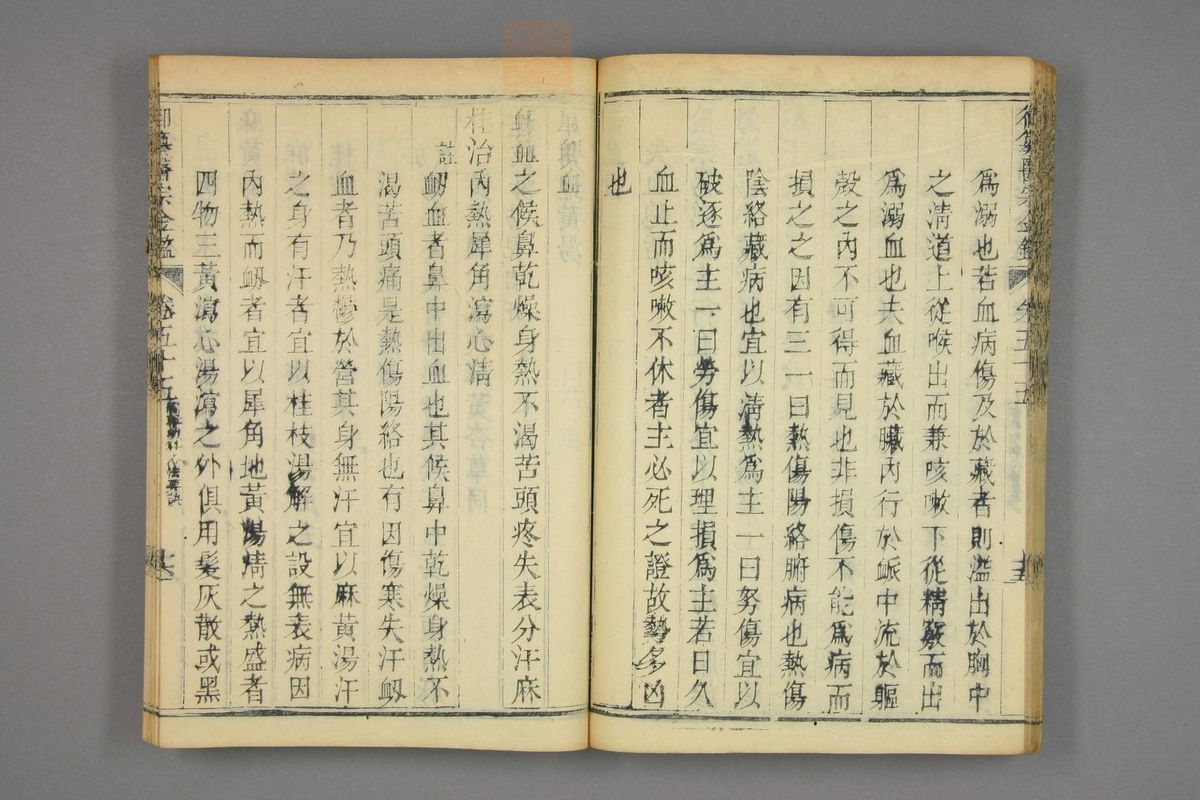 御纂醫宗金鑑 卷五十五
爲溺也若血病傷及於藏者則溢出於胸中
之淸道上從喉出而兼咳嗽下從精竅而出
爲溺血也夫血藏於臟內行於脈中流於軀
殼之內不可得而見也非損傷不能爲病而
損之之因有三一曰熱傷陽絡腑病也熱傷
陰絡藏病也宜以淸熱爲主一曰努傷宜以
破逐爲主一曰勞傷宜以理損爲主若日久
血止而咳嗽不休者主必死之證故勢多凶
也
衄血之候鼻乾燥身熱不渴苦頭疼失表分汗麻
桂治內熱犀角瀉心淸
註
衄血者鼻中出血也其候鼻中乾燥身熱不
渴苦頭痛是熱傷陽絡也有因傷寒失汗衄
血者乃熱鬱於營其身無汗宜以麻黃湯汗
之身有汗者宜以桂枝湯解之設無表病因
內熱而衄者宜以犀角地黃湯淸之熱盛者
四物三黃瀉心湯瀉之外俱用髮灰散或黑
御纂醫宗金鑑 卷五十五